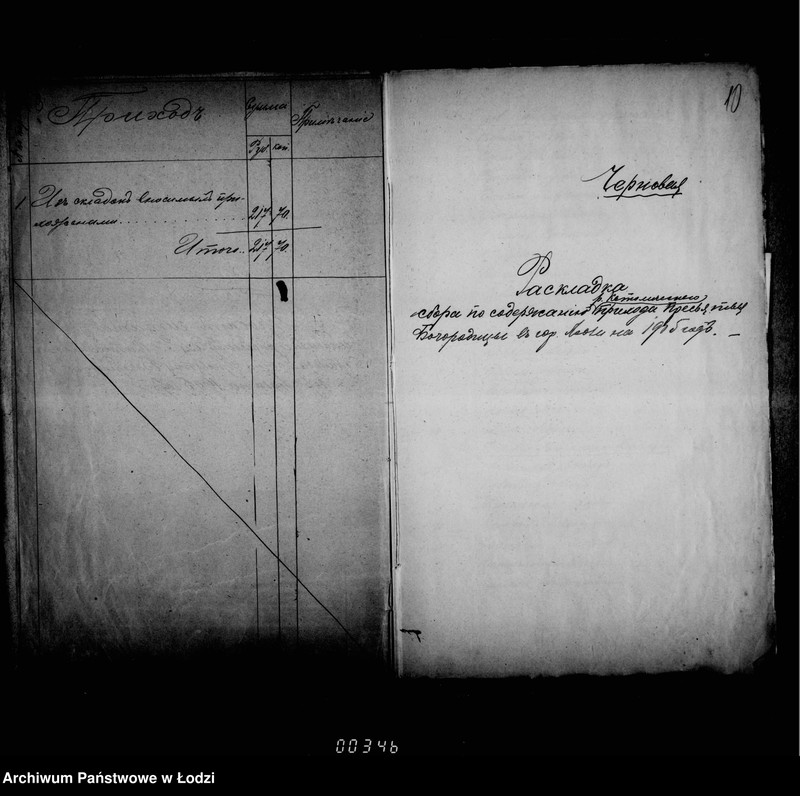 Приходъ
Сумма
Примѣчаніе
Руб
коп
1 Изъ складокъ вносимыхъ при-
хожанами
217 70.
Итого.. 217 70.
10
Черновая
Раскладка
р. Католическаго
сбора по содержанію прихода Пресвят
Богородицы въ гор. Лодзи на 1905 годъ. —
00346
Archiwum Państwowe w Łodzi